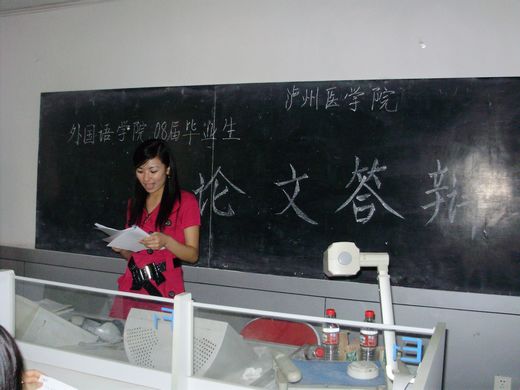 泸州医学院
外国语学院 08届毕业生
论文答辩